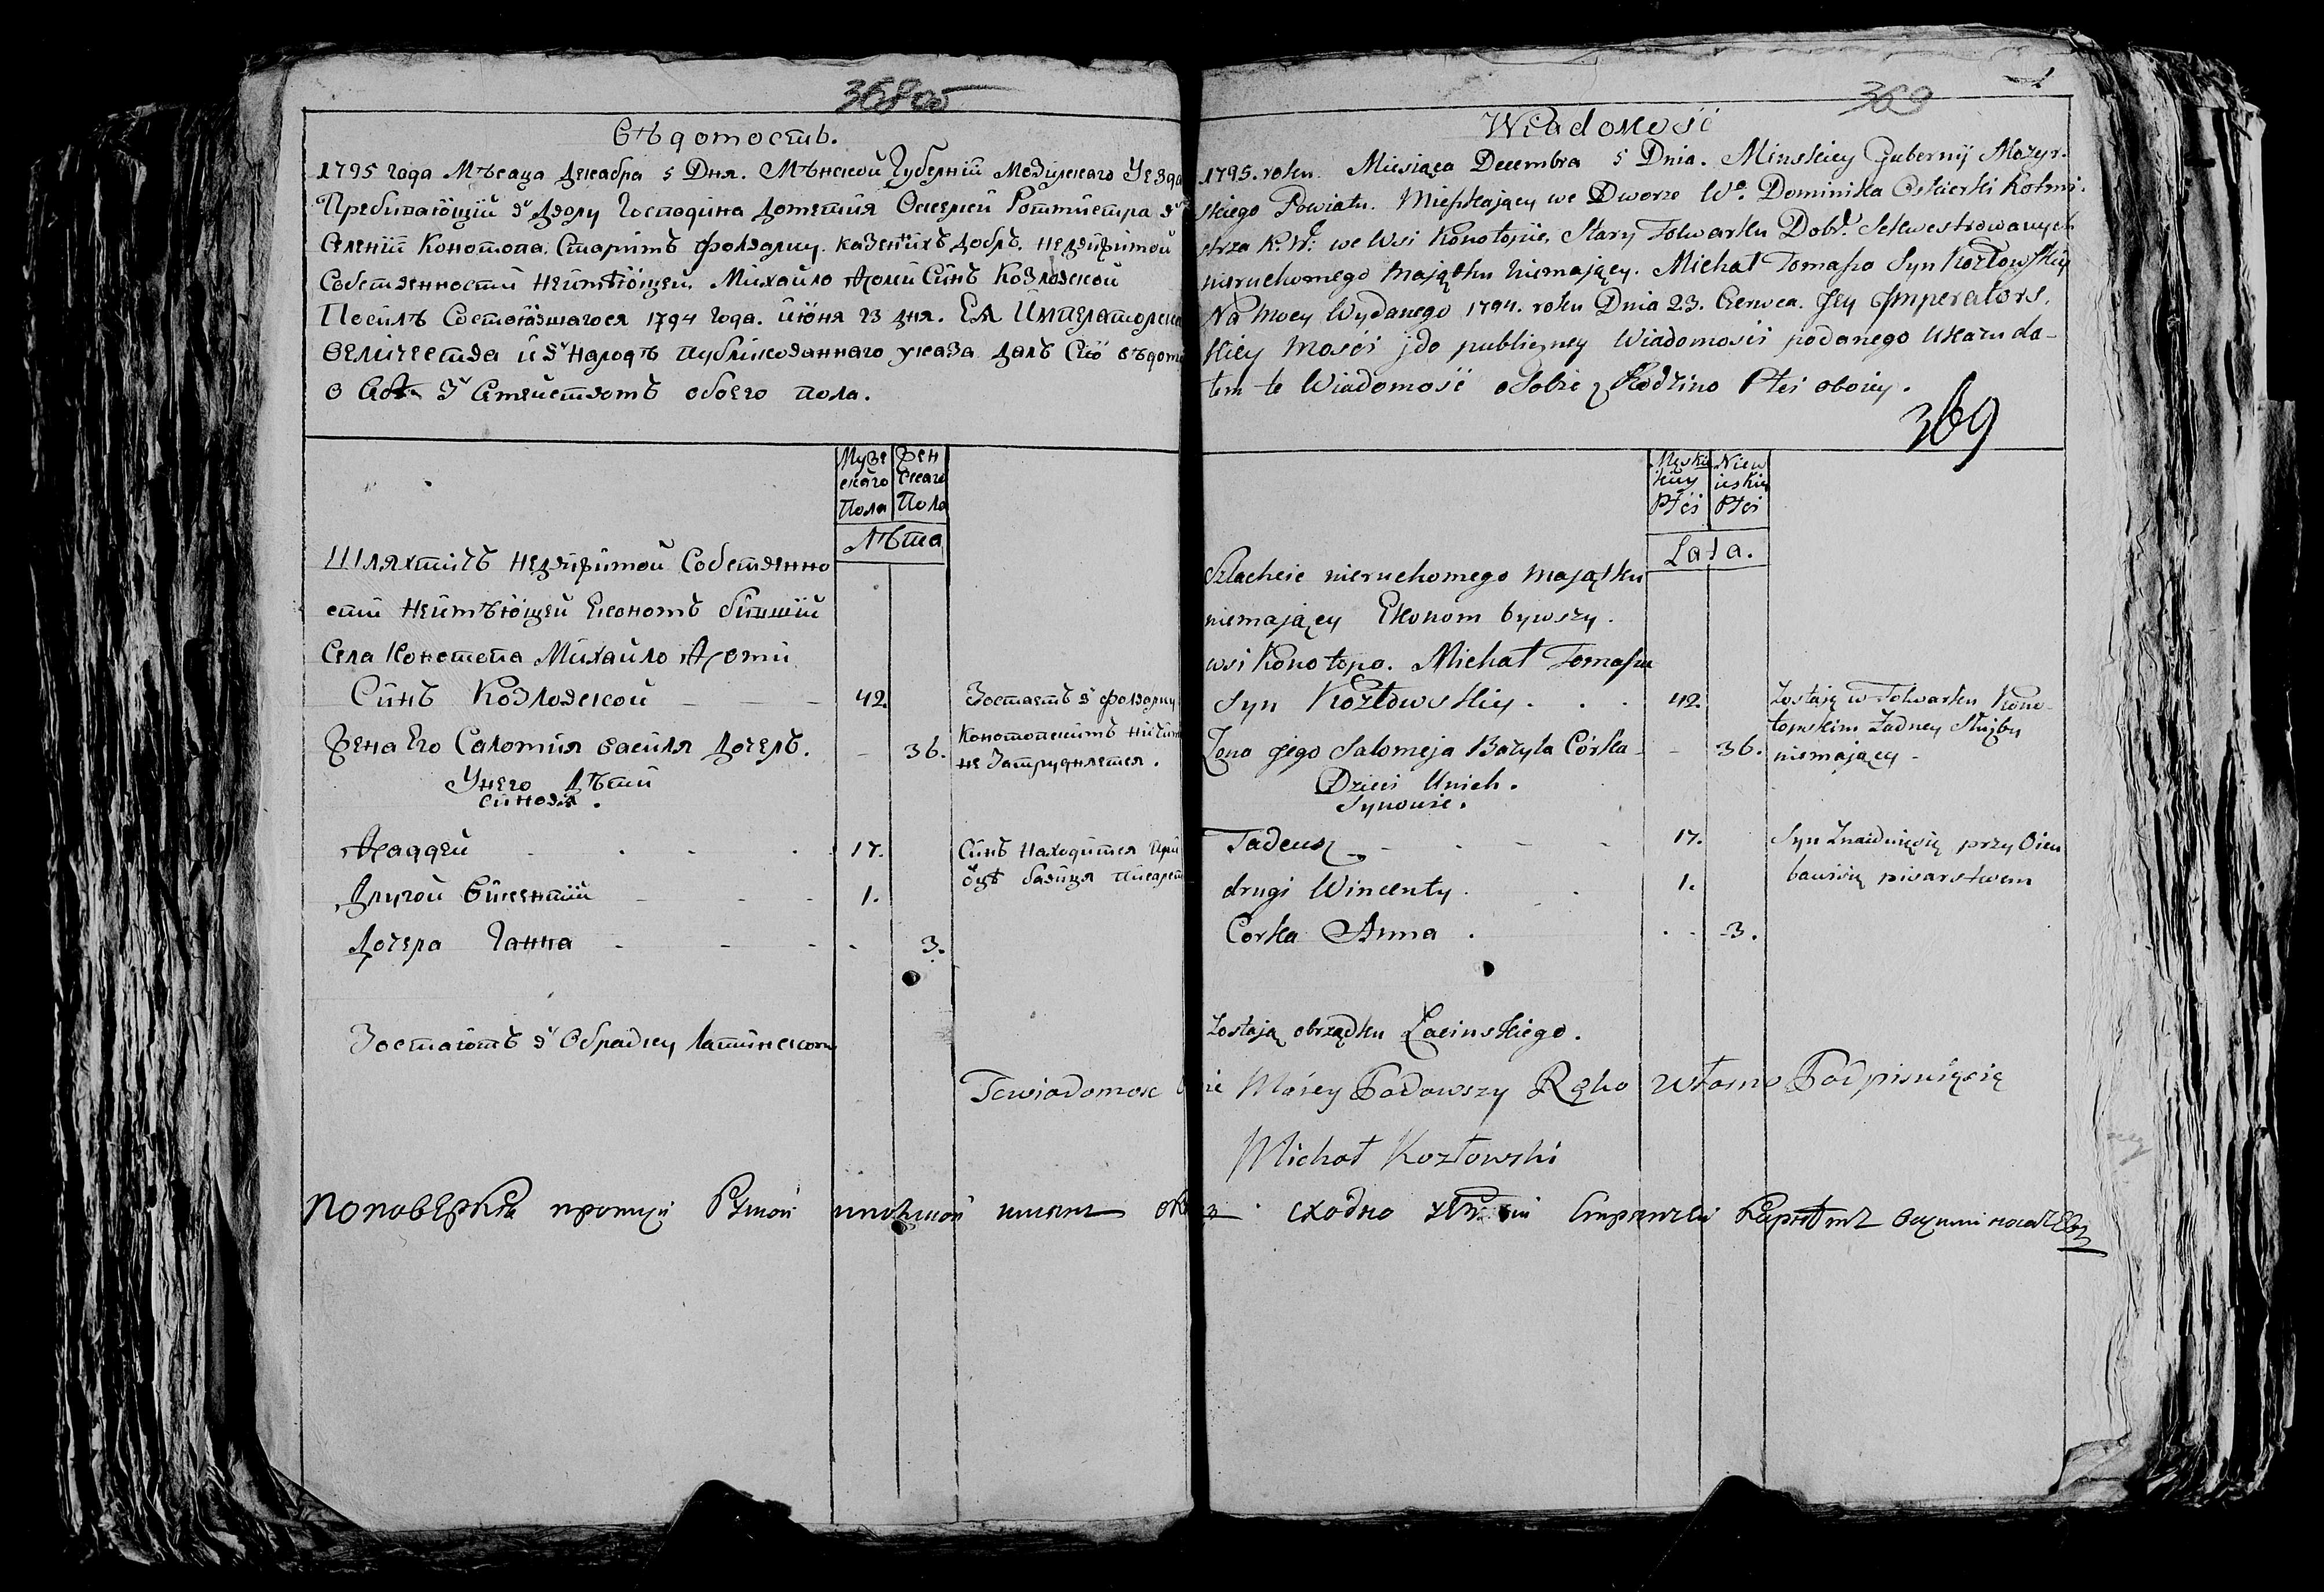 368об
Вѣдомость.
1795 года Мѣсаца Декабра 5 Дня. Мѣнской Губерній Мозирского Уезда
Пребиваюцій в Двору Господина Доменія Оскерки Ротмистра в
Селеній Конотопа. Старимъ фолварку. казенихъ добръ. недвижимой
Собственности неимѣющей. Михайло Ѳоми Синъ Козловской
Посилѣ Состоявшагося 1794 года. июня 23 дня. Ея Императорска
Величества и в народѣ публѣкованнаго указа. далъ Сію вѣдом
о Себѣ З Семействомъ обоего пола.
Мужескаго Пола
Женскаго Пола
Лѣта
Шляхтичъ недвижимой Собственно
сти неимѣющей Економъ бившій
Села Конотопа Михайло Ѳоми
Синъ Козловской - - - 42.
Зостаетъ в фолварку
Конотопскимъ ничим
не Затрудняется.
Жена Его Саломія Василя Дочеръ. - 36.
У него Дѣти
синовя.
Ѳаддей 17.
Синъ находится при
оцѣ бавится писарст
Другой Викентій - - - 1.
Дочера Ганна - - - - 3.
Зостаютъ в Обрадку латинском
369
1
Wiadomość
1795. roku. Miesiąca Decembra 5 Dnia. Minskiey Gubernij Mozyr-
skiego Powiatu. Mieszkaiący we Dworze Wo. Dominika Oskierki Rotmi-
strza K: W: we Wsi Konotopie, Stary Folwarku Dobr. Sekwestrowanych
nieruchomego Majątku niemaiący. Michał Tomasza Syn Kozłowskiy
Na mocy Wydanego 1794. roku Dnia 23. Czerwca. Jey Imperators.
skiey Mości j do publiczney Wiadomości podanego Ukazu da-
łem te Wiadomość o Sobie z Rodzino Płci oboiey.
369
Męskiey Płci
Niewieskiey Płci
Lata.
Szlachcic nieruchomego Mająłku
niemaiący Ekonom bywszy.
wsi Konotopo. Michał Tomasza
Syn Kozłowskiy . . . 42.
Zostaią w Folwarku Kono-
topskim Żadney Służby
niemaiący -
Żona jego Salomeja Bazyla Córka - - 36.
Dzieci Unich.
Synowie.
Tadeusz - - - - 17.
Syn Znaiduięsię przy Oicu
bawisię pisarstwem
drugi Wincenty . . 1.
Corka Anna . . - 3.
Zostają obrządku Łacinskiego.
Tewiadomosc Podawszy Ręko Własno Podpisuięsię
Michał Kozłowski
поповеркѣ противу сходно